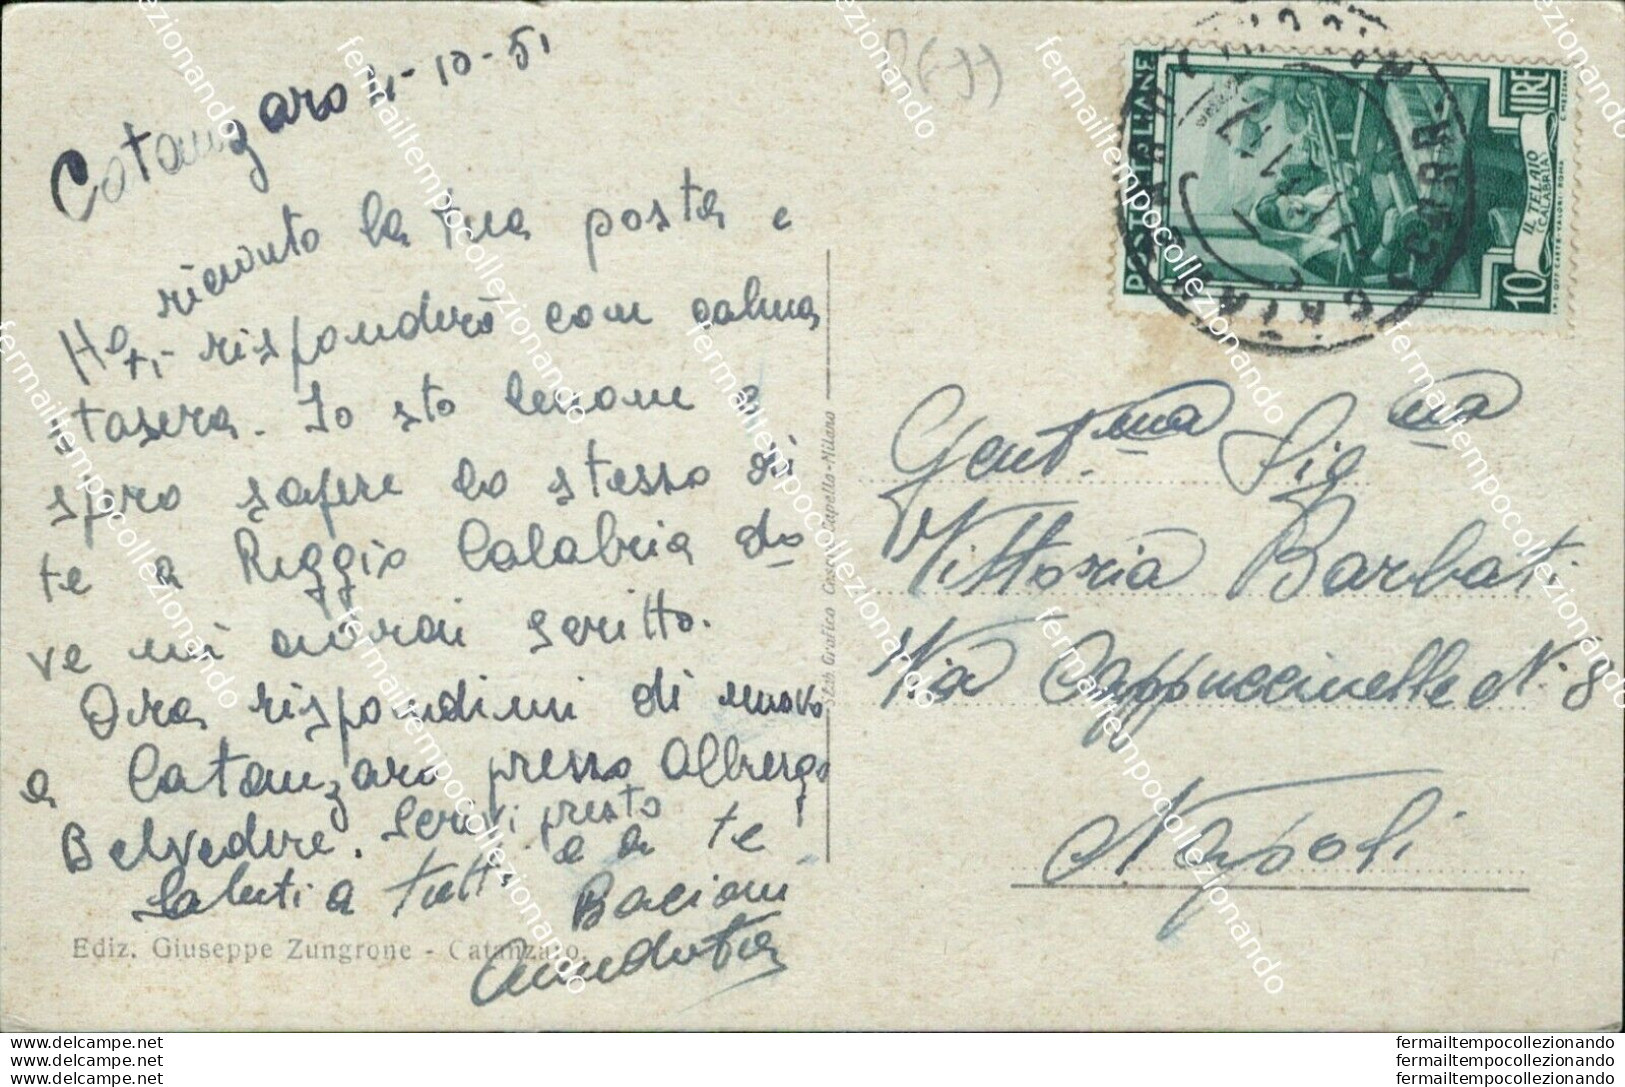 Catanzaro 11-10-51
Ho ricevuto la tua posta e
ti risponderò con calma
stasera. Io sto benone e
spero sapere lo stesso di
te a Reggio Calabria do
ve mi avorai scritto.
Ora rispondimi di nuovo
a Catanzaro presso Albergo
Belvedere. Scrivi presto
Saluti a tutti e a te
Bacioni
Ediz. Giuseppe Zungrone - Catanzaro.
Capello-Milano
POSTE ITALIANE
10 LIRE
IL TELAIO
(CALABRIA)
Gent.ma Sig.na
Vittoria Barbati
Via Cappuccinelle N. 8
Napoli
www.delcampe.net
www.delcampe.net
www.delcampe.net
fermailtempocollezionando
fermailtempocollezionando
fermailtempocollezionando